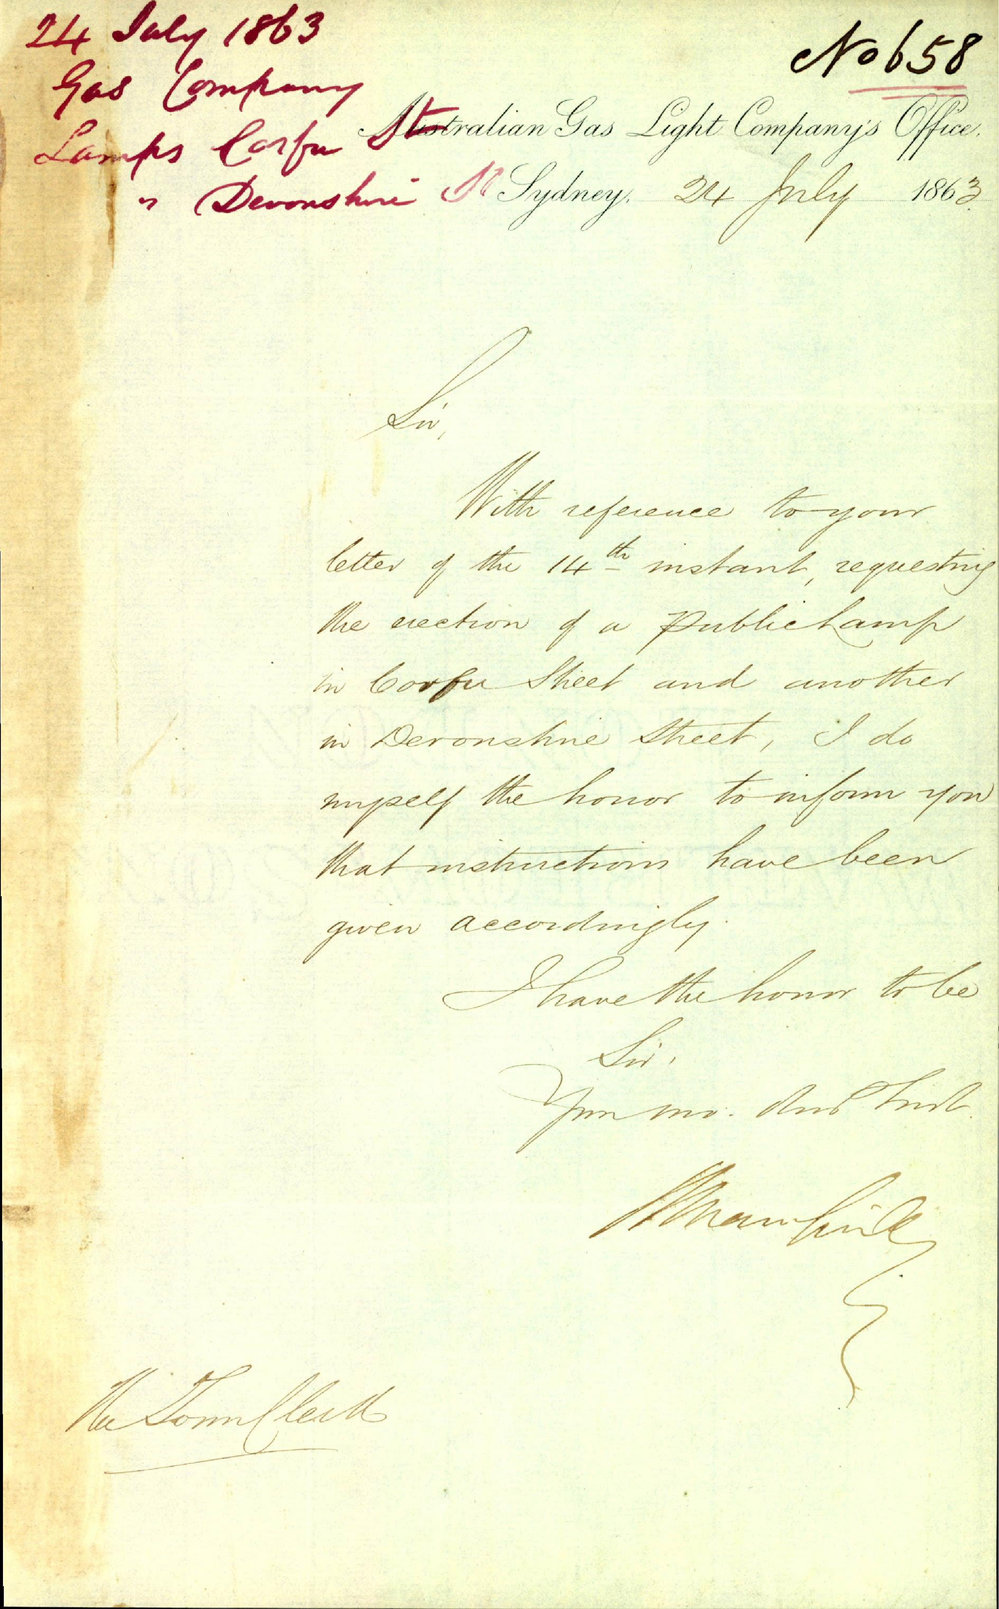 24 July 1863
Gas Company
Lamps Corfu St
" Devonshire St
No 658
Australian Gas Light Company's Office.
Sydney. 24 July 1863
Sir,
With reference to your
letter of the 14th instant, requesting
the erection of a Public Lamp
in Corfu Street and another
in Devonshire Street, I do
myself the honor to inform you
that instructions have been
given accordingly.
I have the honor to be
Sir,
Your mo. Obt Servt.
The Town Clerk